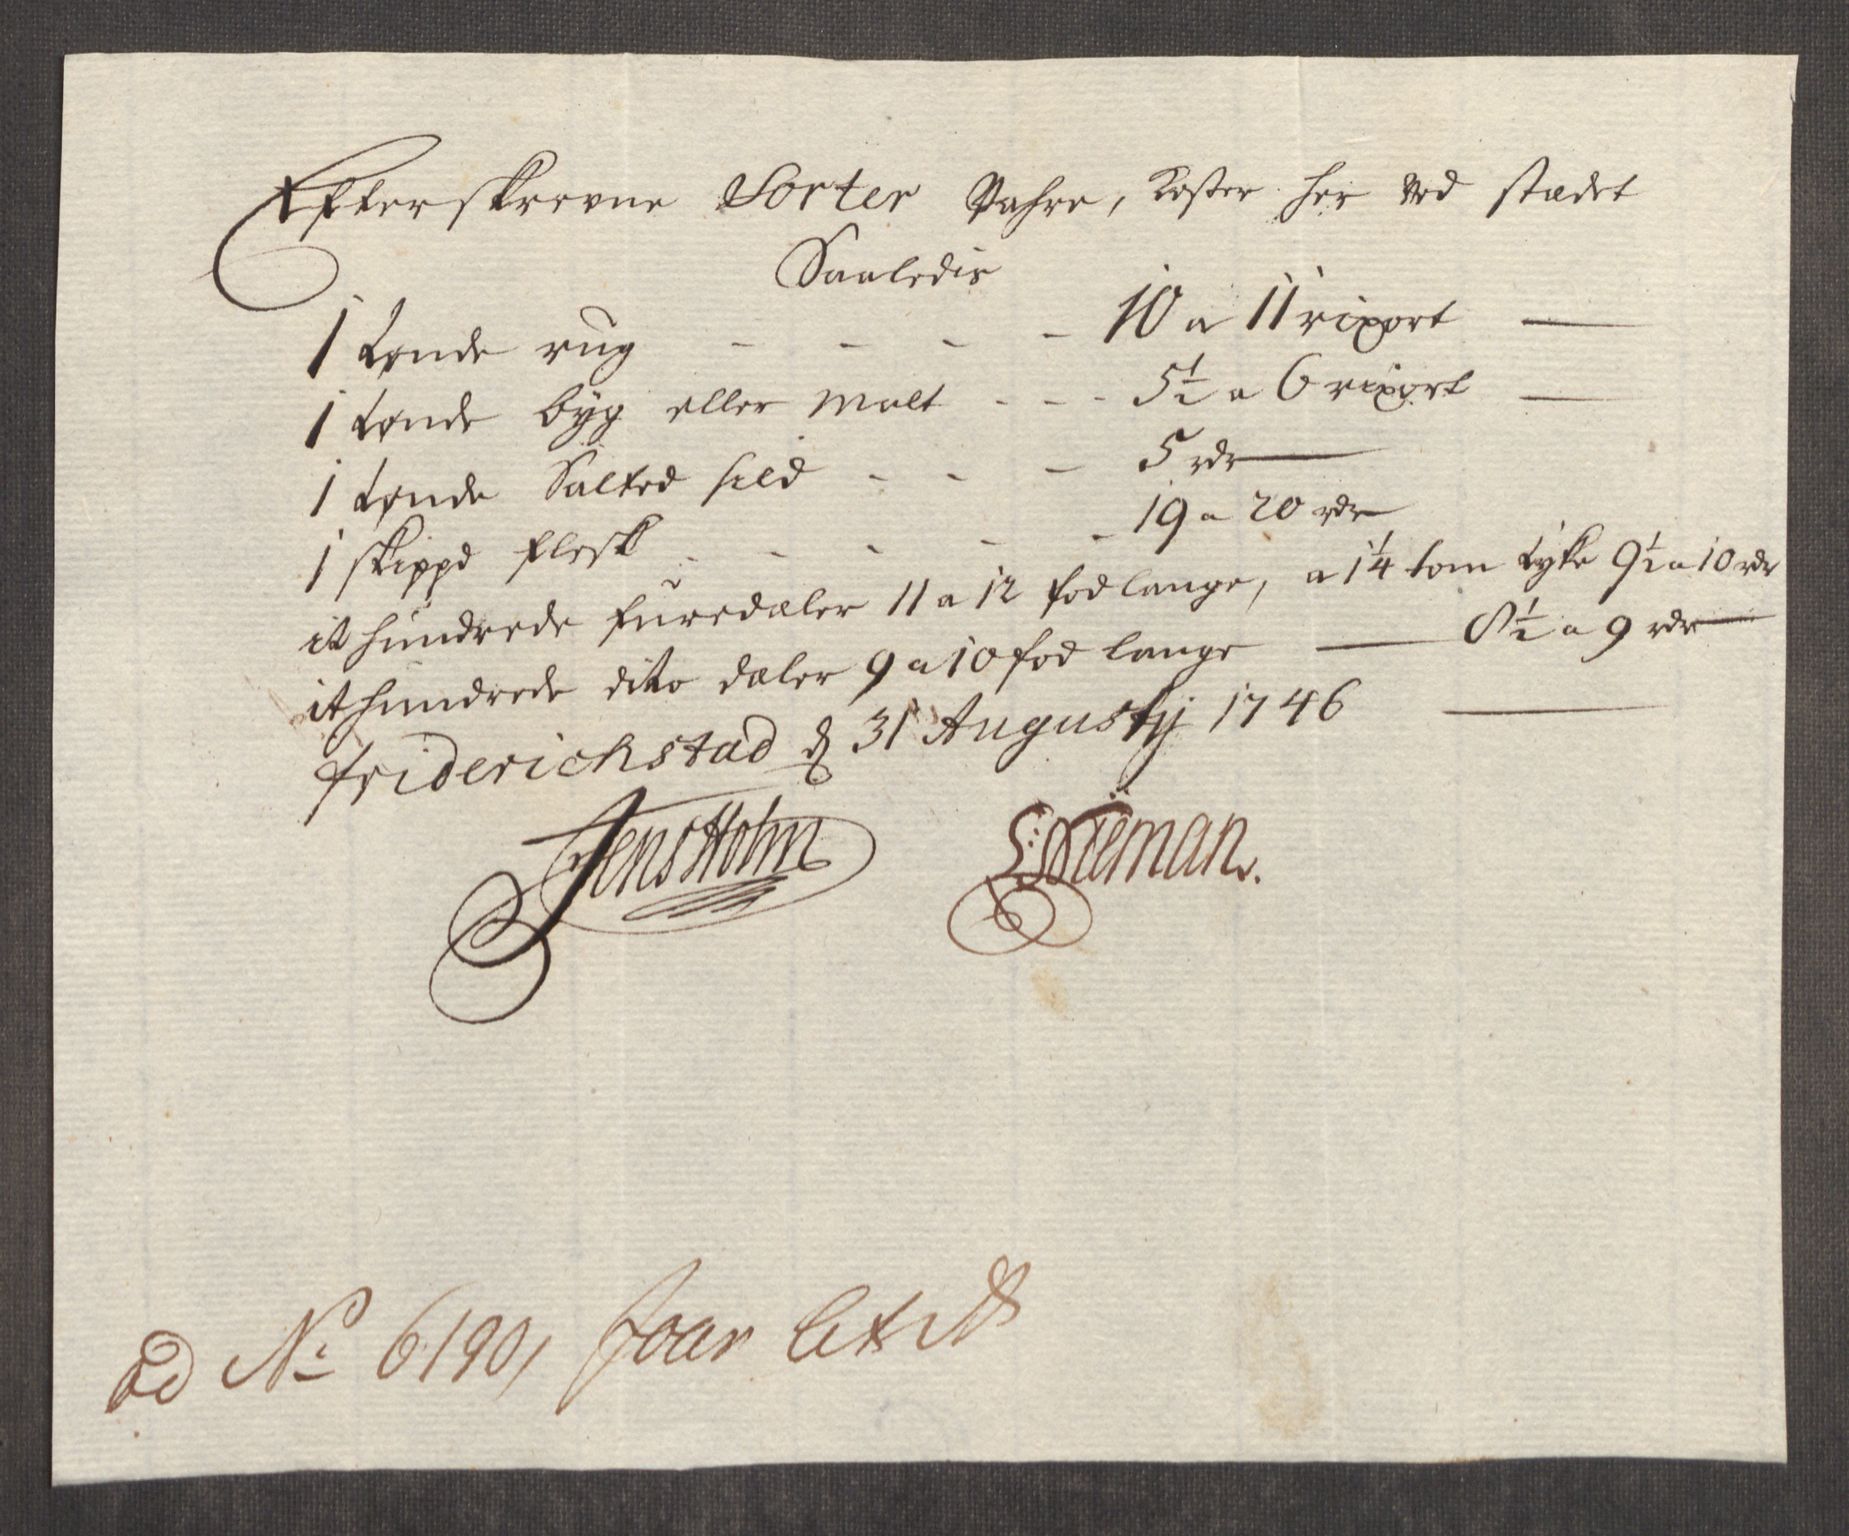 Efterskrevne Sorter Vahre, koster her ved stædet
Saaledis
1 tønde rug - - - - 10 a 11 rixort —
1 tønde byg eller malt - - - 5 1/2 a 6 rixort —
1 tønde Salted sild - - - 5 rdr —
1 skippd flesk - - - - - 19 a 20 rdr
it hundrede furedæler 11 a 12 fod lange, a 1 1/4 tom tyke 9 1/2 a 10 rdr
it hundrede dito dæler 9 a 10 fod lange — 8 1/2 a 9 rdr
friderichstad d 31 Augustij 1746 —
Jens Holm
Nieman.
No 6190,